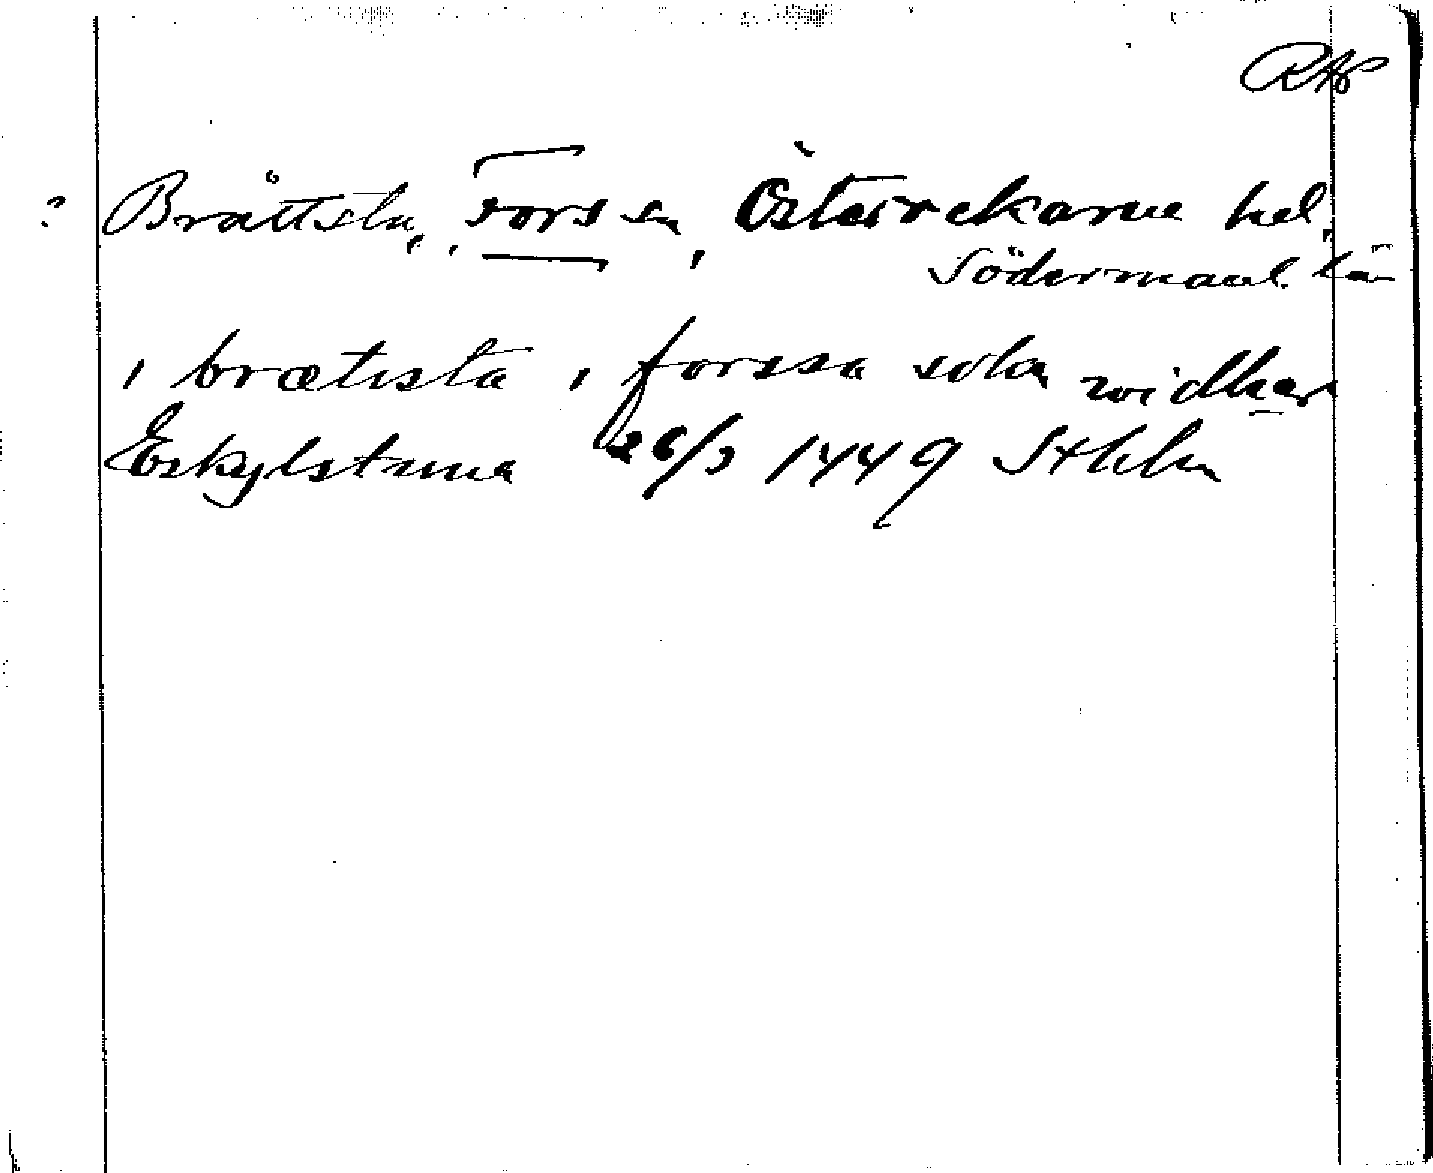 RAP
? Bråttsta, Forssa, Österrekarne hd,
Södermanl. län
i brætista i forssa sokn widher
Eskylstuna 26/3 1449 Sthlm